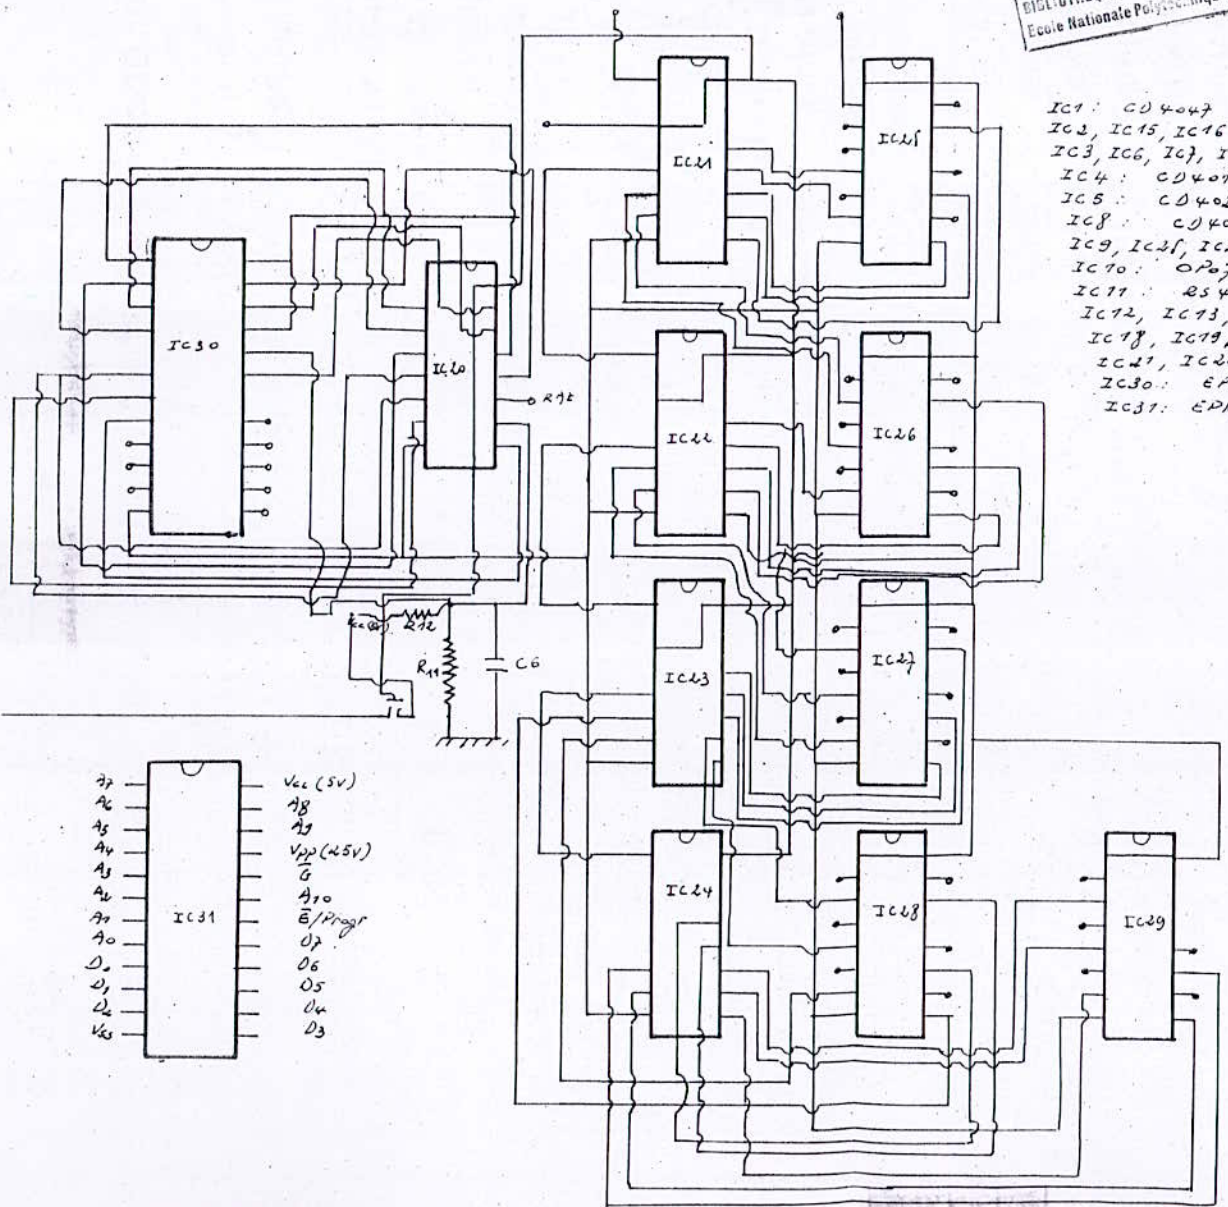 Ecole Nationale Polytechnique
IC1 : CD4047
IC2, IC15, IC16
IC3, IC6, IC7,
IC4 :
IC5 :
IC8 :
IC9, IC25,
IC10 : OP07
IC11 :
IC12, IC13,
IC18, IC19,
IC21,
IC30 :
IC31 :
IC21
IC25
IC30
IC20
RAZ
IC22
IC26
R12
R11
C6
IC23
IC27
IC24
IC28
IC29
IC31
A7
A6
A5
A4
A3
A2
A1
A0
D0
D1
D2
Vss
Vcc (5v)
A8
A9
Vpp (25v)
G̅
A10
E̅/Progr
D7
D6
D5
D4
D3